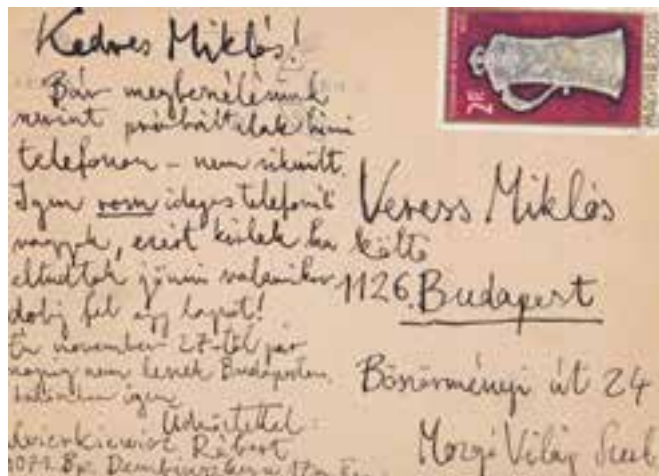 Kedves Miklós!
Bár megbeszélésünk
szerint próbáltalak hívni
telefonon – nem sikerült.
Igen rossz ideges telefonáló
vagyok, ezért kérlek ha
eltudtok jönni valamikor
dobj fel egy lapot!
Én november 27-től pár
napig nem leszek Budapesten,
utána igen
Üdvözlettel:
Wierkiewicz Róbert
1071. Bp.
2 Ft
MAGYAR POSTA
Veress Miklós
költő
1126. Budapest
Böszörményi út 24
Mozgó Világ Szerk